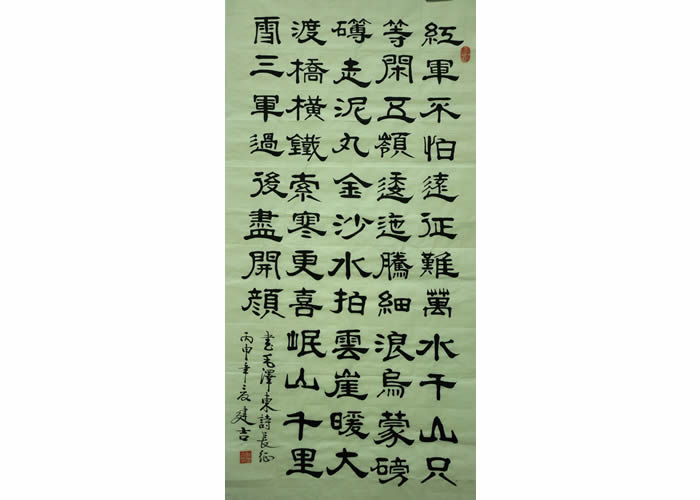 紅軍不怕遠征難萬水千山只
等閑五嶺逶迤騰細浪烏蒙磅
礴走泥丸金沙水拍雲崖暖大
渡橋橫鐵索寒更喜岷山千里
雪三軍過後盡開顏
書毛澤東詩長征
丙申年夏建吉